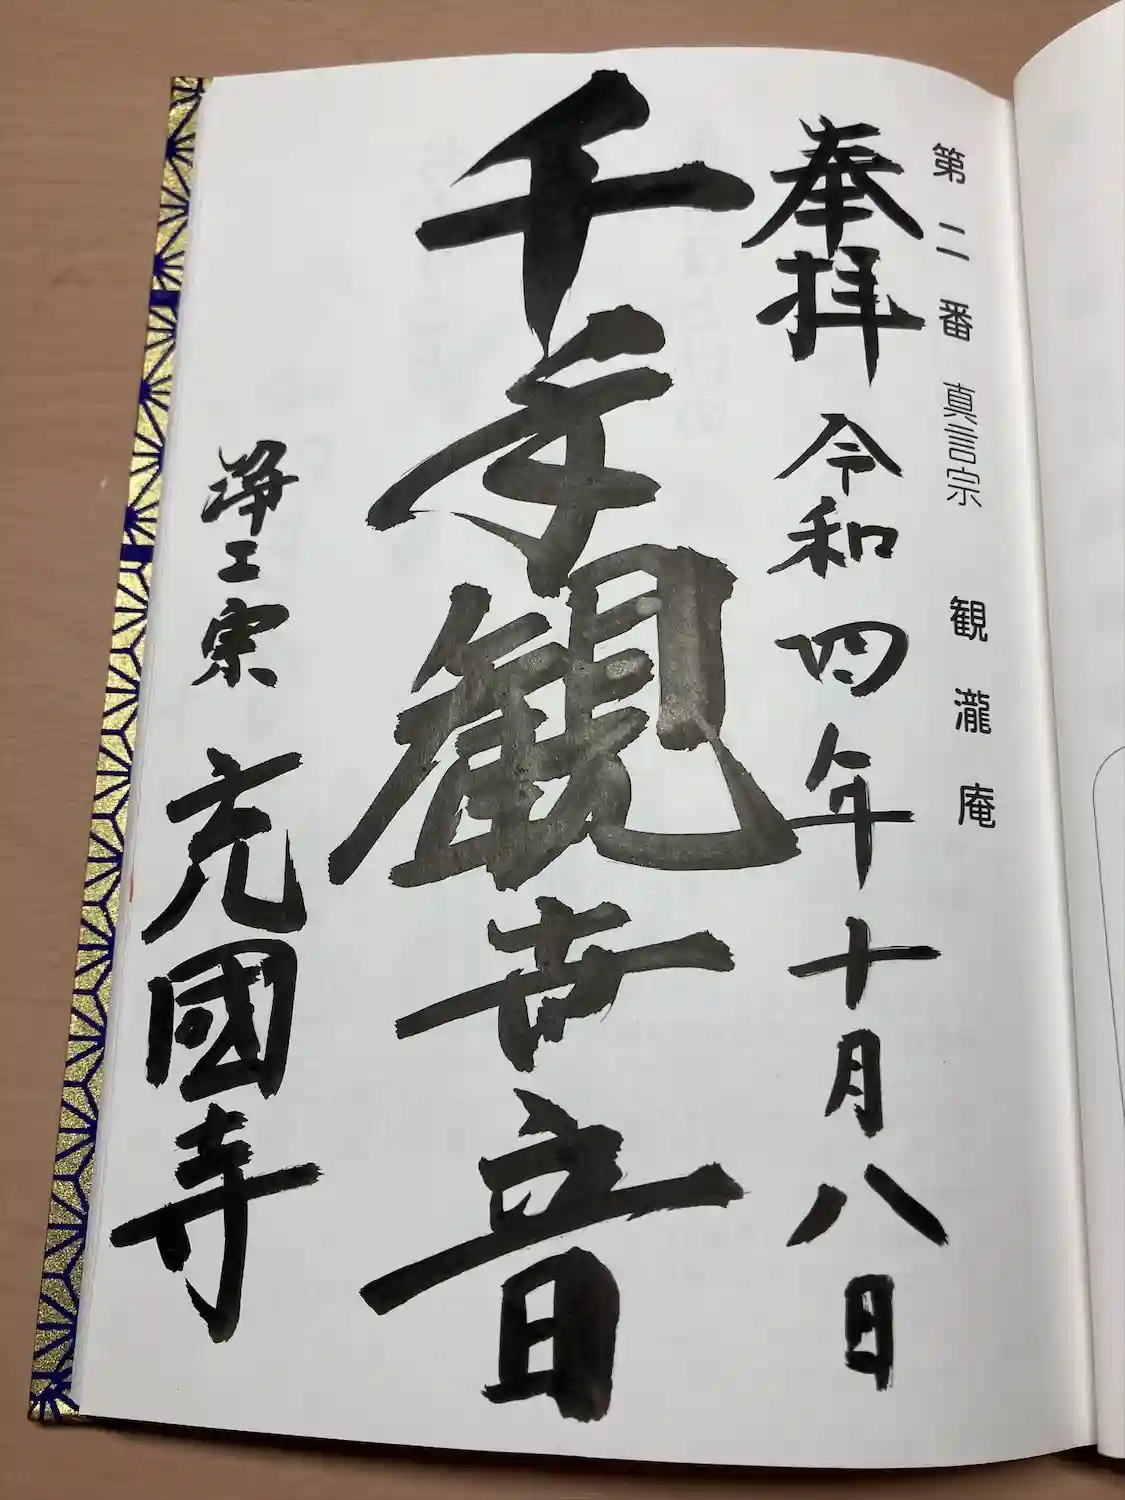 第二番 真言宗 観瀧庵
奉拝 令和四年十月八日
千手観世音
浄土宗 充國寺